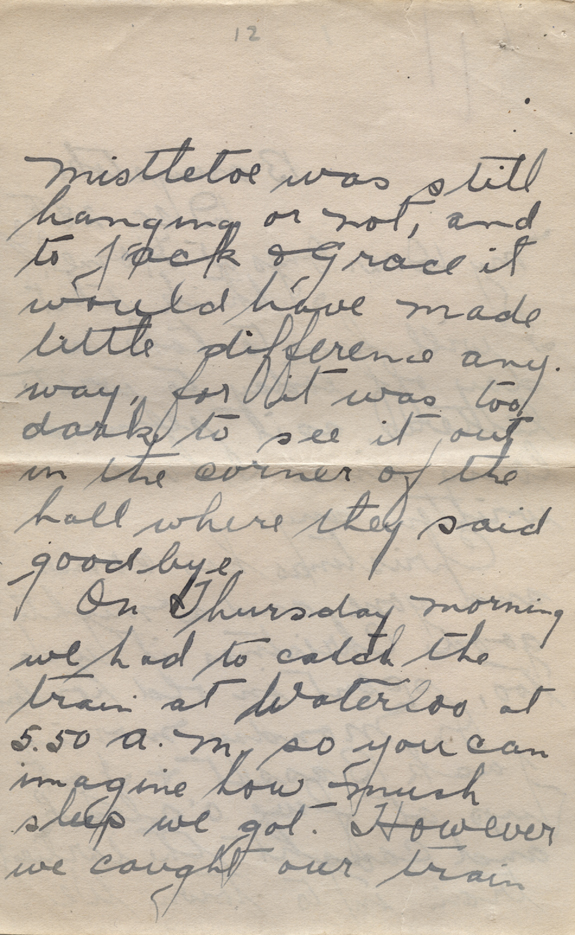 12
mistletoe was still
hanging or not, and
to Jack & Grace it
would have made
little difference any.
way, for it was too
dark to see it out
in the corner of the
hall where they said
goodbye.
On Thursday morning
we had to catch the
train at Waterloo at
5.50 a.m. so you can
imagine how much
sleep we got. However
we caught our train